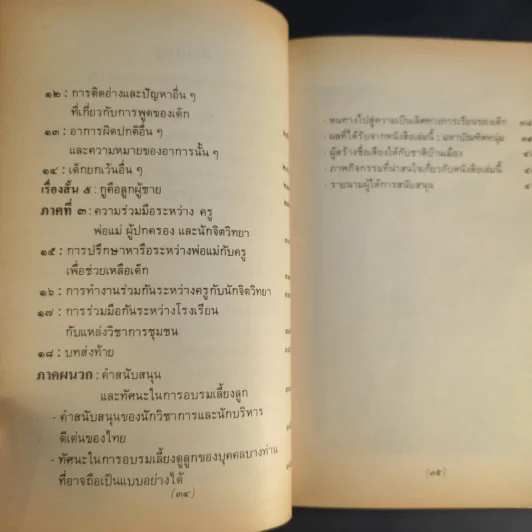 ๑๒ : การติดอ่างและปัญหาอื่น ๆ
ที่เกี่ยวกับการพูดของเด็ก
๑๓ : อาการผิดปกติอื่น ๆ
และความหมายของอาการนั้น ๆ
๑๔ : เด็กยกเว้นอื่น ๆ
เรื่องสั้น ๕ : กูคือลูกผู้ชาย
ภาคที่ ๓ : ความร่วมมือระหว่าง ครู
พ่อแม่ ผู้ปกครอง และนักจิตวิทยา
๑๕ : การปรึกษาหารือระหว่างพ่อแม่กับครู
เพื่อช่วยเหลือเด็ก
๑๖ : การทำงานร่วมกันระหว่างครูกับนักจิตวิทยา
๑๗ : การร่วมมือกันระหว่างโรงเรียน
กับแหล่งวิชาการชุมชน
๑๘ : บทส่งท้าย
ภาคผนวก : คำสนับสนุน
และทัศนะในการอบรมเลี้ยงลูก
- คำสนับสนุนของนักวิชาการและนักบริหาร
ดีเด่นของไทย
- ทัศนะในการอบรมเลี้ยงดูลูกของบุคคลบางท่าน
ที่อาจถือเป็นแบบอย่างได้
(๓๔)
- หนทางไปสู่ความเป็นเลิศทางการเรียนของเด็ก
- ผลที่ได้รับจากหนังสือเล่มนี้ : มหาบัณฑิตหนุ่ม
ผู้สร้างชื่อเสียงให้กับชาติบ้านเมือง
- ภาพกิจกรรมที่น่าสนใจเกี่ยวกับหนังสือเล่มนี้
- รายนามผู้ให้การสนับสนุน
(๓๕)